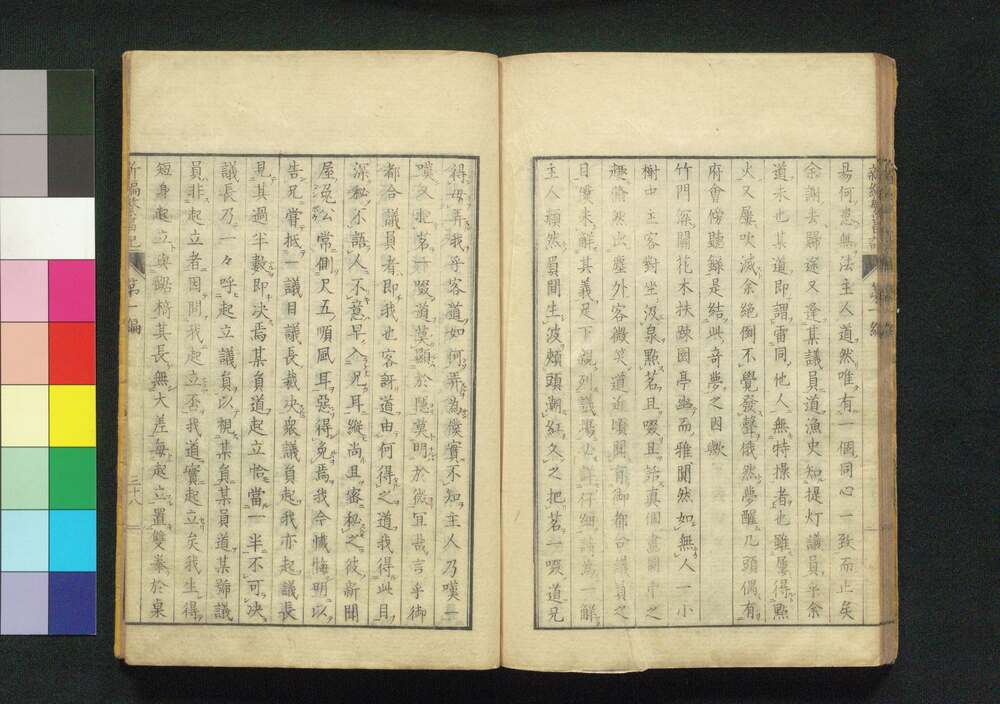 易何患無法主人道然唯有一個同心一致而止矣
余謝去歸途又逢某議員道漁史知提灯議員乎余
道未也某道即謂雷同他人無特操者也雖屢得點
火又屢吹滅余絶倒不覺發聲俄然夢醒几頭偶有
府會傍聽録是結此奇夢之因歟
竹門深關花木扶踈園亭幽而雅闃然如無人一小
榭中主客對坐汲泉點茗且啜且話真個畫圖中之
趣偷然出塵外客微笑道近頃聞有御都合議員之
目僕未解其義足下親列議場必詳仔細請為一解
主人頳然眉間生波頰頭潮紅久之把茗一啜道兄
得毋弄我乎客道如何弄為僕實不知主人乃嘆一
嘆又把茗一啜道莫顯於隱莫明於微宜哉言乎御
都合議員者即我也客訝道由何得之道我得此目
深秘不語人不意早入兄耳縱尚且密秘之彼新聞
屋兔公常側尺五順風耳惡得免焉我今懺悔明以
告兄嘗抵一議目議長裁决衆議員起我亦起議長
見其過半數即决焉某員道起立恰當一半不可决
議長乃一々呼起立議員以視某員某員道某號議
員非起立者因問我起立否我道實起立矣我生得
短身起立與踞椅其長無大差每起立置雙拳於桌
新編 第一編 三十八